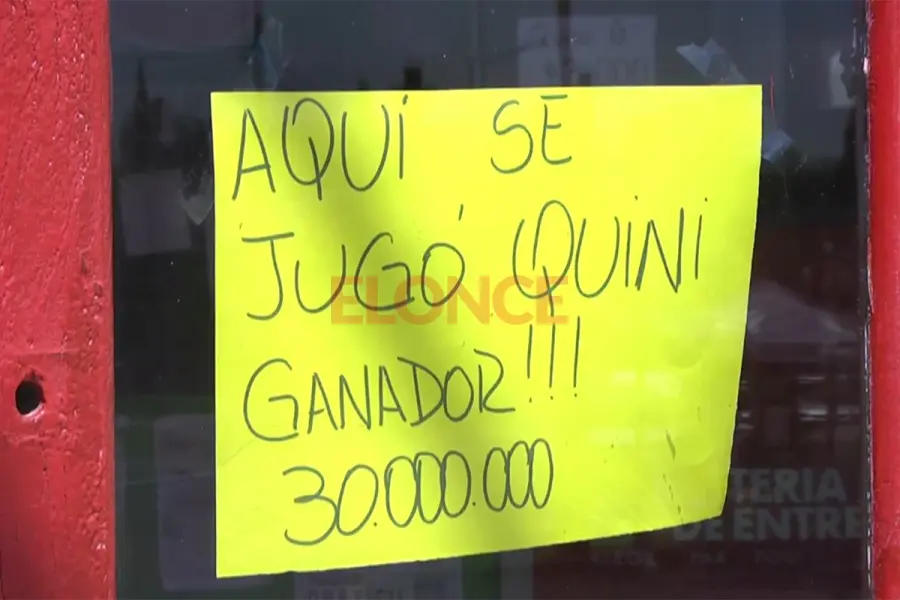 AQUÍ SE
JUGÓ QUINI
ELONCE
GANADOR!!!
30.000.000
TERIA
DE ENTRE